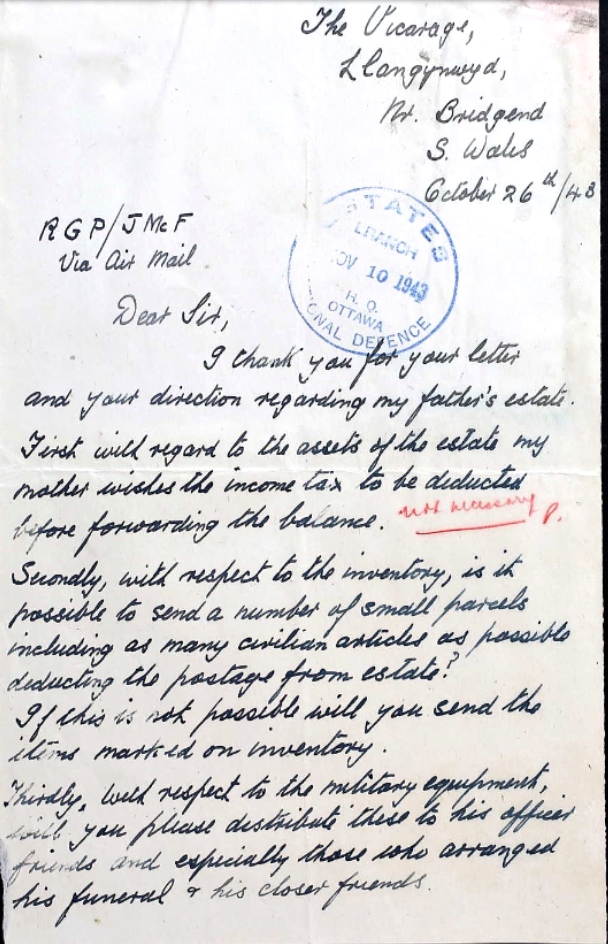 The Vicarage,
Llangynwyd,
Nr. Bridgend
S. Wales
October 26th/43
RGP/JMcF
Via Air Mail
ESTATES
BRANCH
NOV 10 1943
H. Q.
OTTAWA
ONAL DEFENCE
Dear Sir,
I thank you for your letter
and your direction regarding my father's estate.
First with regard to the assets of the estate my
mother wishes the income tax to be deducted
before forwarding the balance.
not necessary P.
Secondly, with respect to the inventory, is it
possible to send a number of small parcels
including as many civilian articles as possible
deducting the postage from estate?
If this is not possible will you send the
items marked on inventory.
Thirdly, with respect to the military equipment,
will you please distribute these to his officer
friends and especially those who arranged
his funeral & his closer friends.